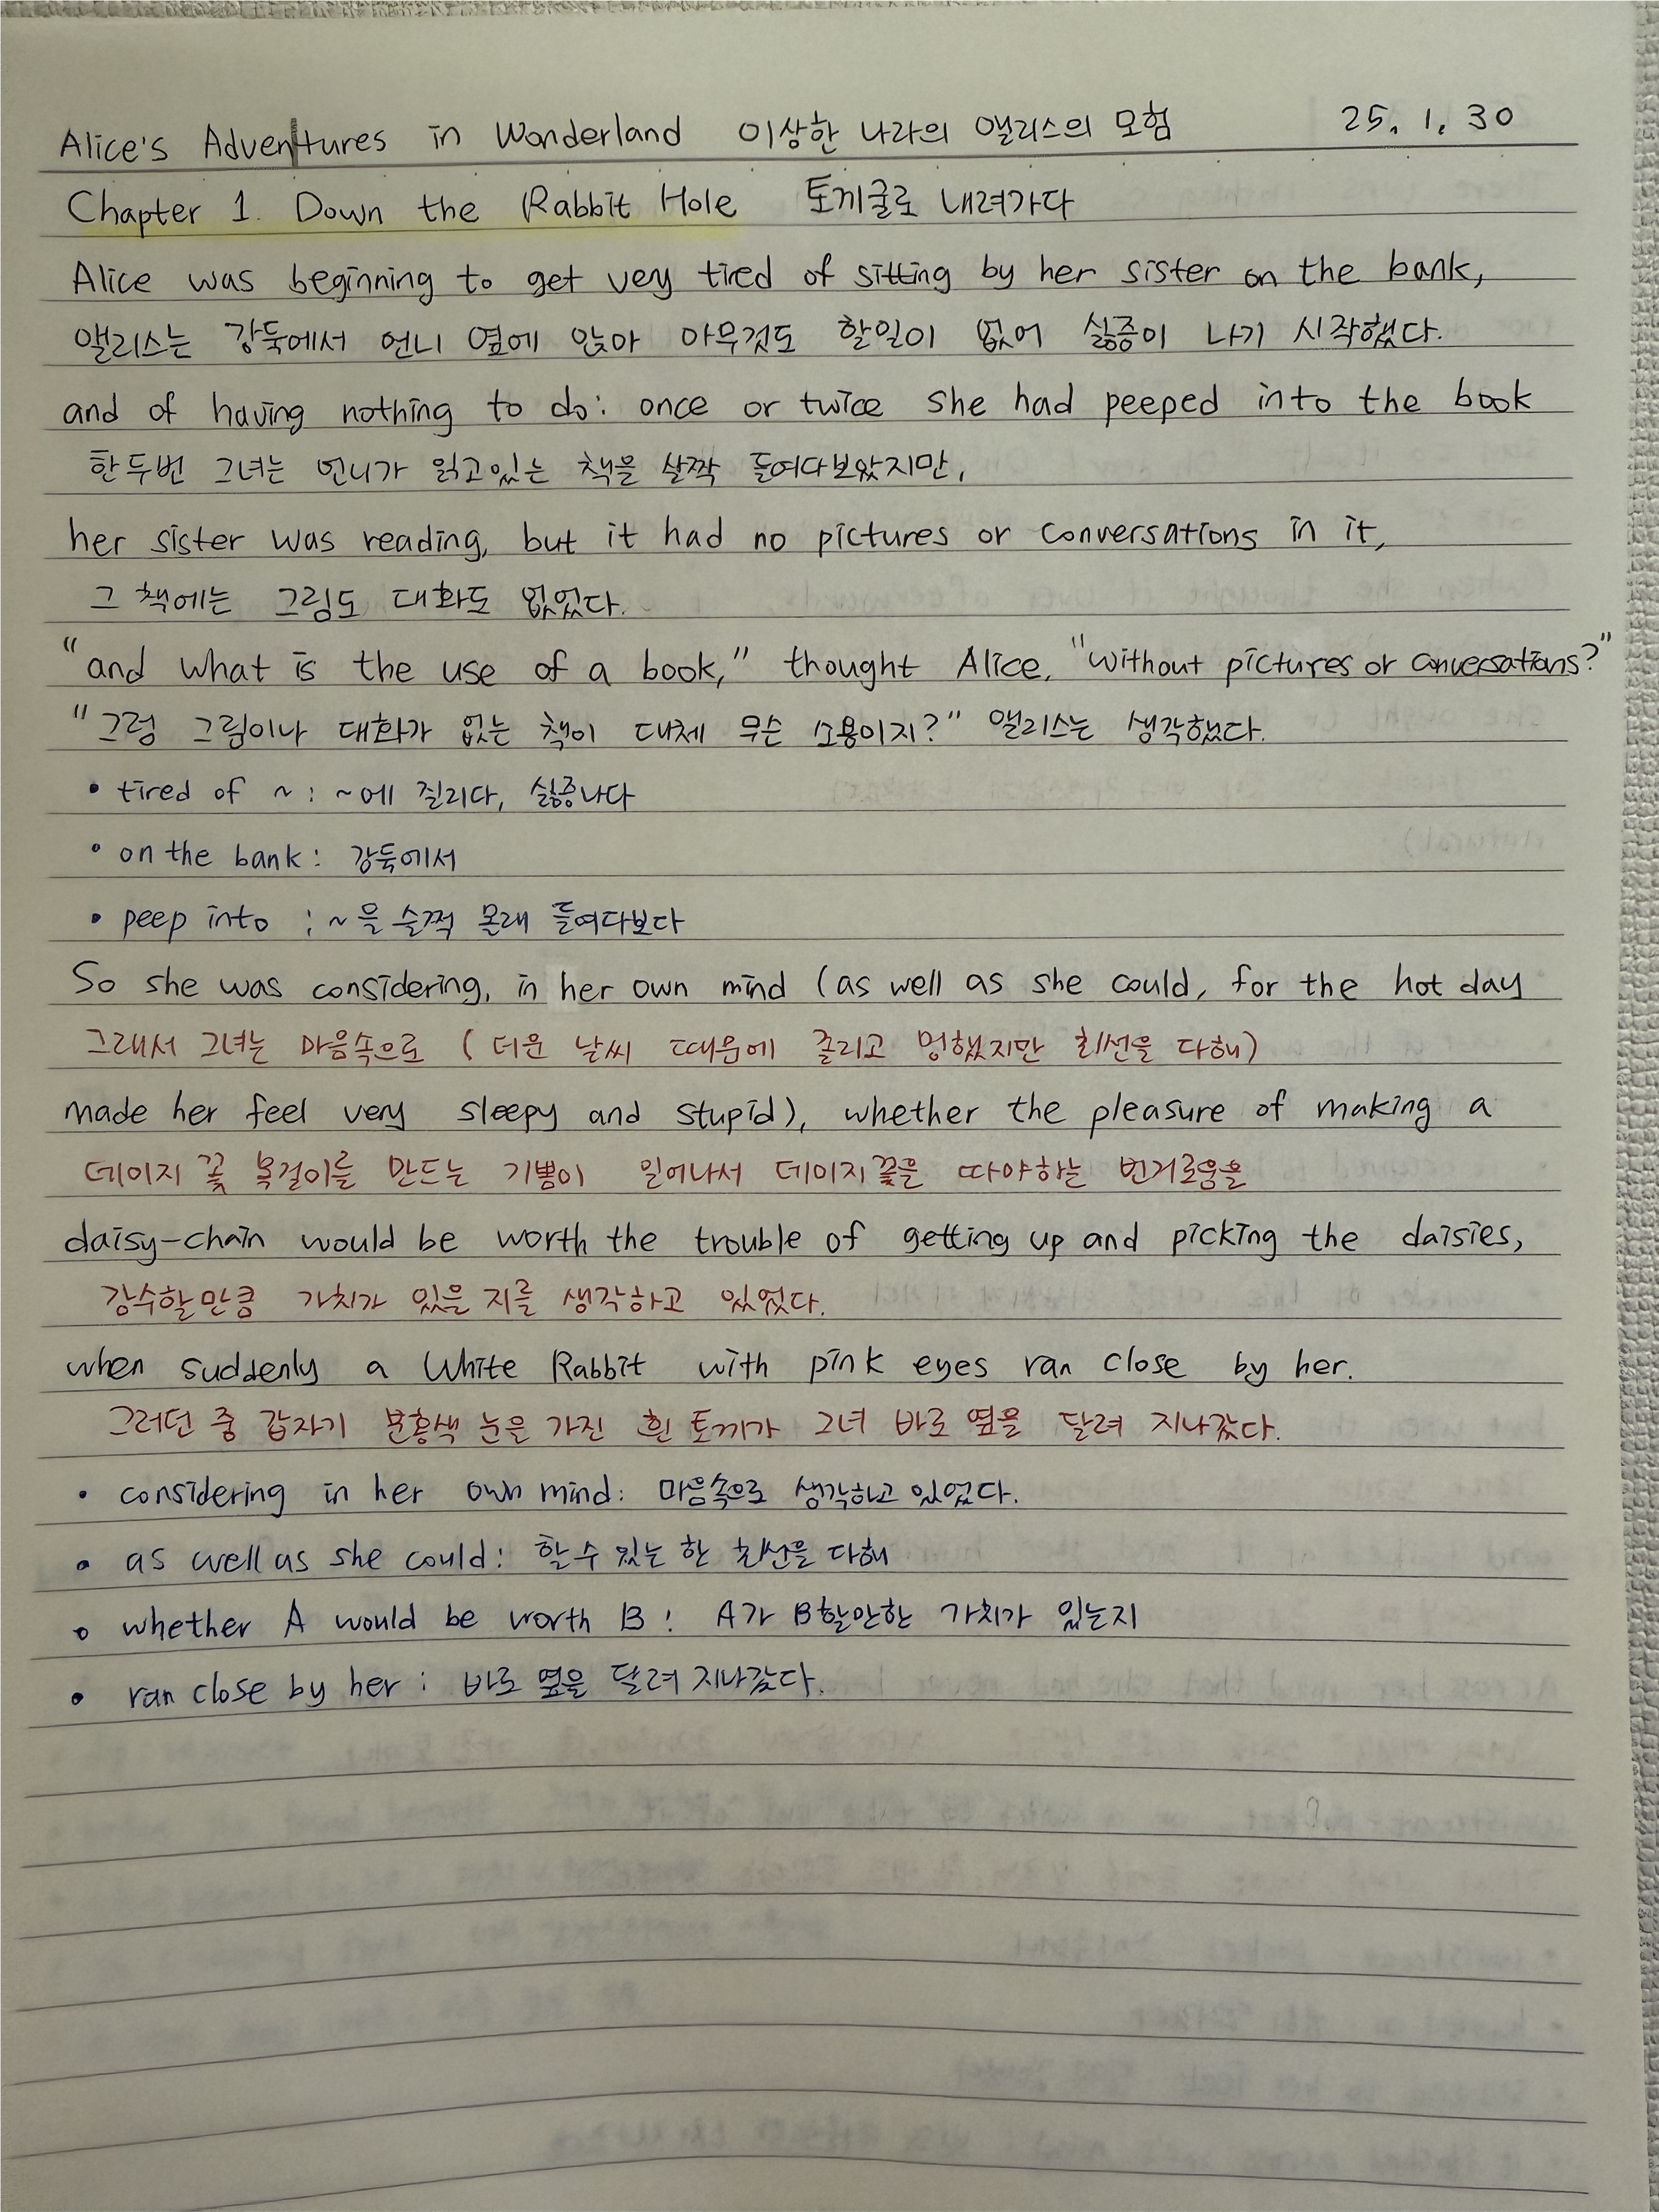 Alice's Adventures in Wonderland 이상한 나라의 앨리스의 모험 25. 1. 30
Chapter 1. Down the Rabbit Hole 토끼굴로 내려가다
Alice was beginning to get very tired of sitting by her sister on the bank,
앨리스는 강둑에서 언니 옆에 앉아 아무것도 할일이 없어 싫증이 나기 시작했다.
and of having nothing to do: once or twice she had peeped into the book
한두번 그녀는 언니가 읽고있는 책을 살짝 들여다보았지만,
her sister was reading, but it had no pictures or conversations in it,
그 책에는 그림도 대화도 없었다.
"and what is the use of a book," thought Alice, "without pictures or conversations?"
"그럼 그림이나 대화가 없는 책이 대체 무슨 소용이지?" 앨리스는 생각했다.
• tired of ~ : ~에 질리다, 싫증나다
• on the bank : 강둑에서
• peep into : ~을 슬쩍 몰래 들여다보다
So she was considering, in her own mind (as well as she could, for the hot day
그래서 그녀는 마음속으로 (더운 날씨 때문에 졸리고 멍했지만 최선을 다해)
made her feel very sleepy and stupid), whether the pleasure of making a
데이지 꽃 목걸이를 만드는 기쁨이 일어나서 데이지꽃을 따야하는 번거로움을
daisy-chain would be worth the trouble of getting up and picking the daisies,
감수할만큼 가치가 있을 지를 생각하고 있었다.
when suddenly a White Rabbit with pink eyes ran close by her.
그러던 중 갑자기 분홍색 눈을 가진 흰 토끼가 그녀 바로 옆을 달려 지나갔다.
• considering in her own mind : 마음속으로 생각하고 있었다.
• as well as she could : 할수 있는 한 최선을 다해
• whether A would be worth B : A가 B할만한 가치가 있는지
• ran close by her : 바로 옆을 달려 지나갔다.